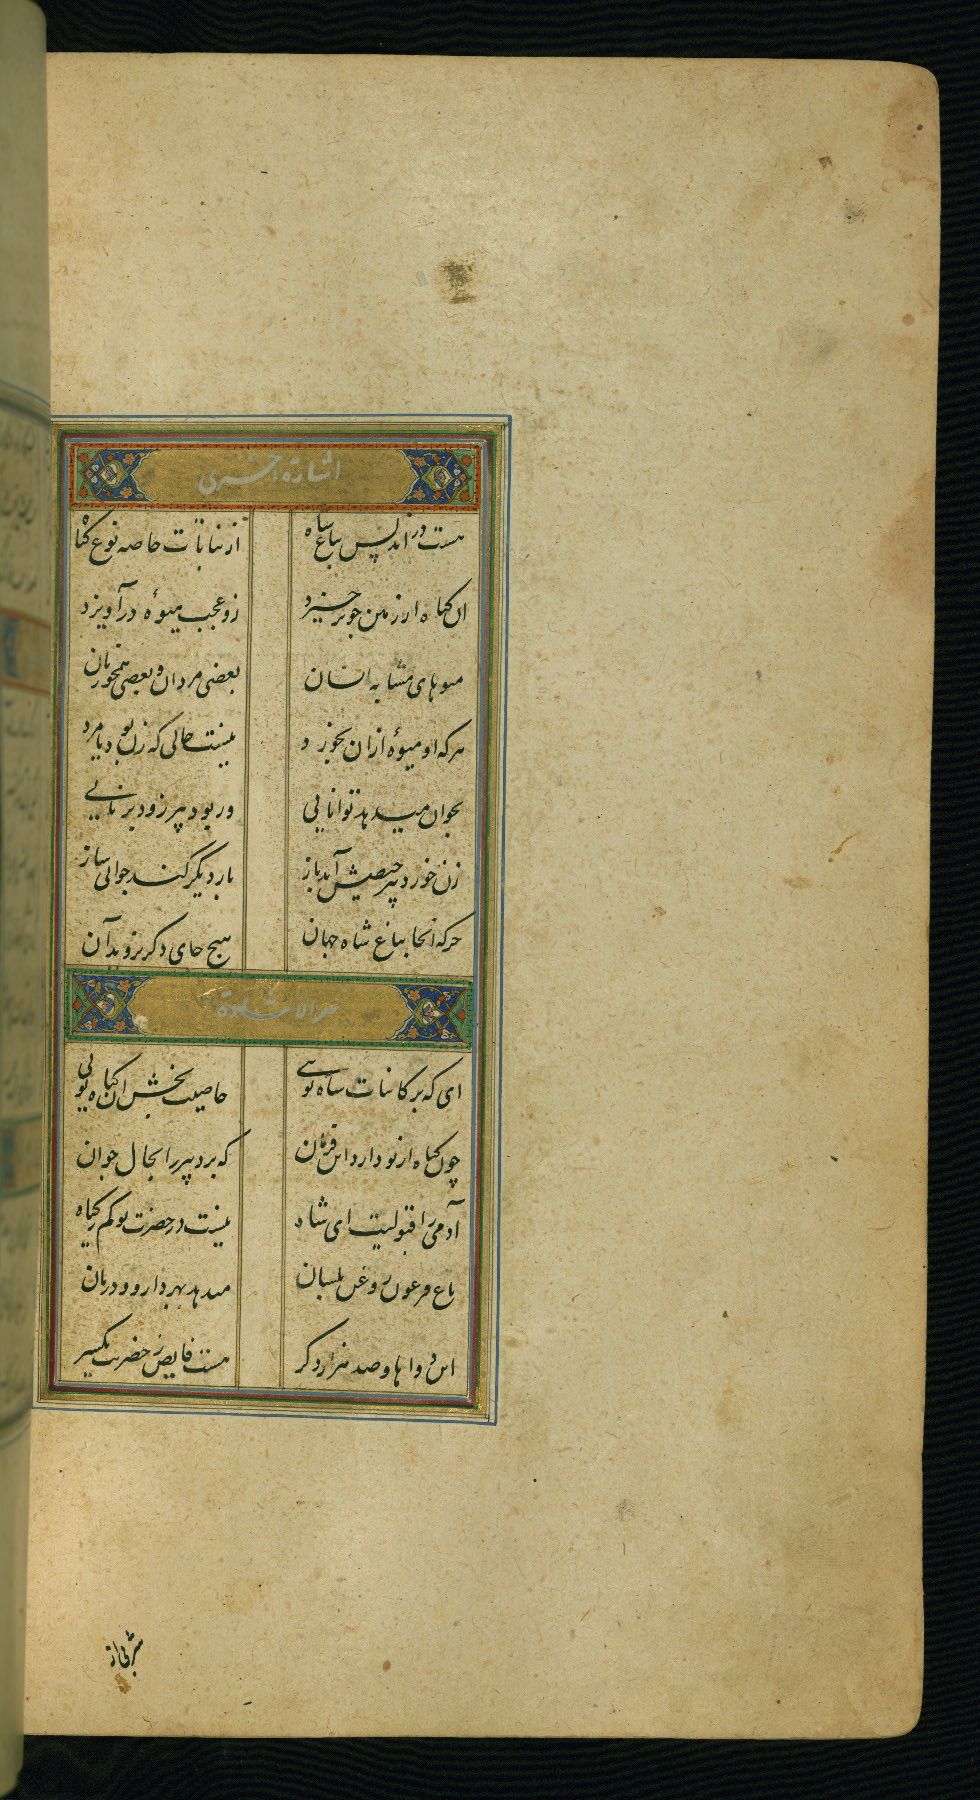 اشارة اخری
هست در اندلس بباغ شاه
از نباتات خاصه نوع کیاه
ان کیاه از زمین جو برخیزد
زو عجب میوهٔ درآویزد
میوهای مشابه انسان
بعضی مردان و بعضی همچو زنان
هر که او میوهٔ ازان بخورد
نیست حالی که زن بود یا مرد
بجوان میدهد توانایی
ور بود پیر زود برنایی
زن خورد پیر حیضش آید باز
بار دیگر کند جوانی ساز
جز که انجا بباغ شاه جهان
هیچ جای دکر نروید آن
سر الاشارة
ای که بر کاینات شاه تویی
خاصیت بخش ان کیاه تویی
چون کیاه از تو دارد این فرمان
که برد پیر را بحال جوان
آدمی را قبولیت ای شاه
نیست در حضرت تو کم ز کیاه
باغ فرعون روغن بلسان
میدهد بهر دارو و درمان
این دواها و صد هزار دکر
هست فایض ز حضرتت یکسر